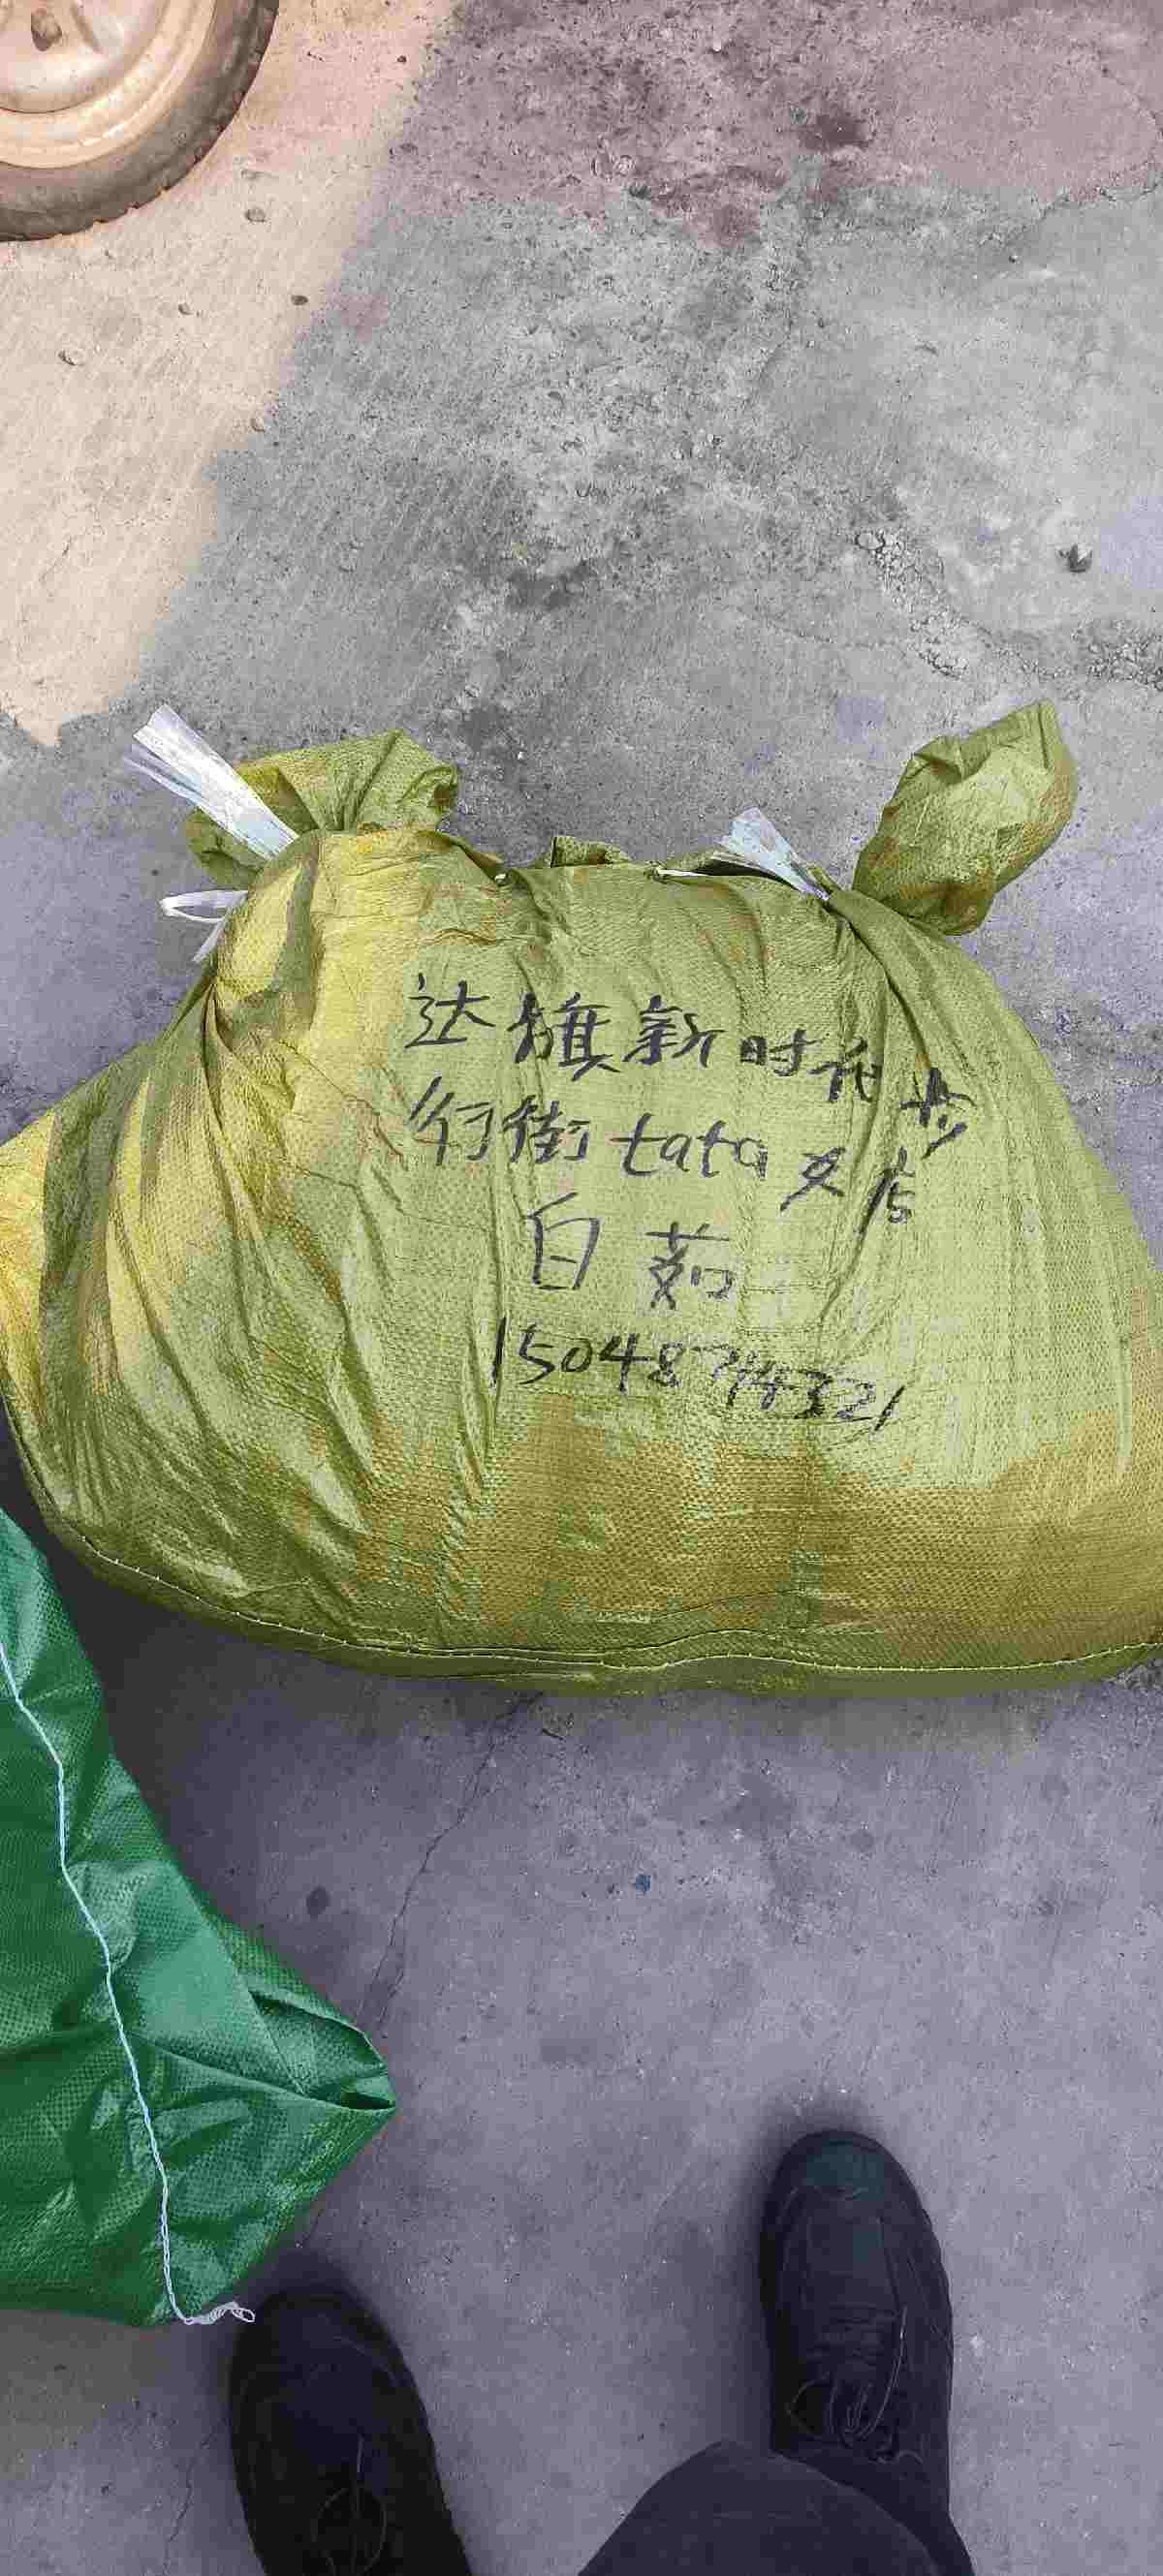 达旗新时代步
行街tata女店
白茹